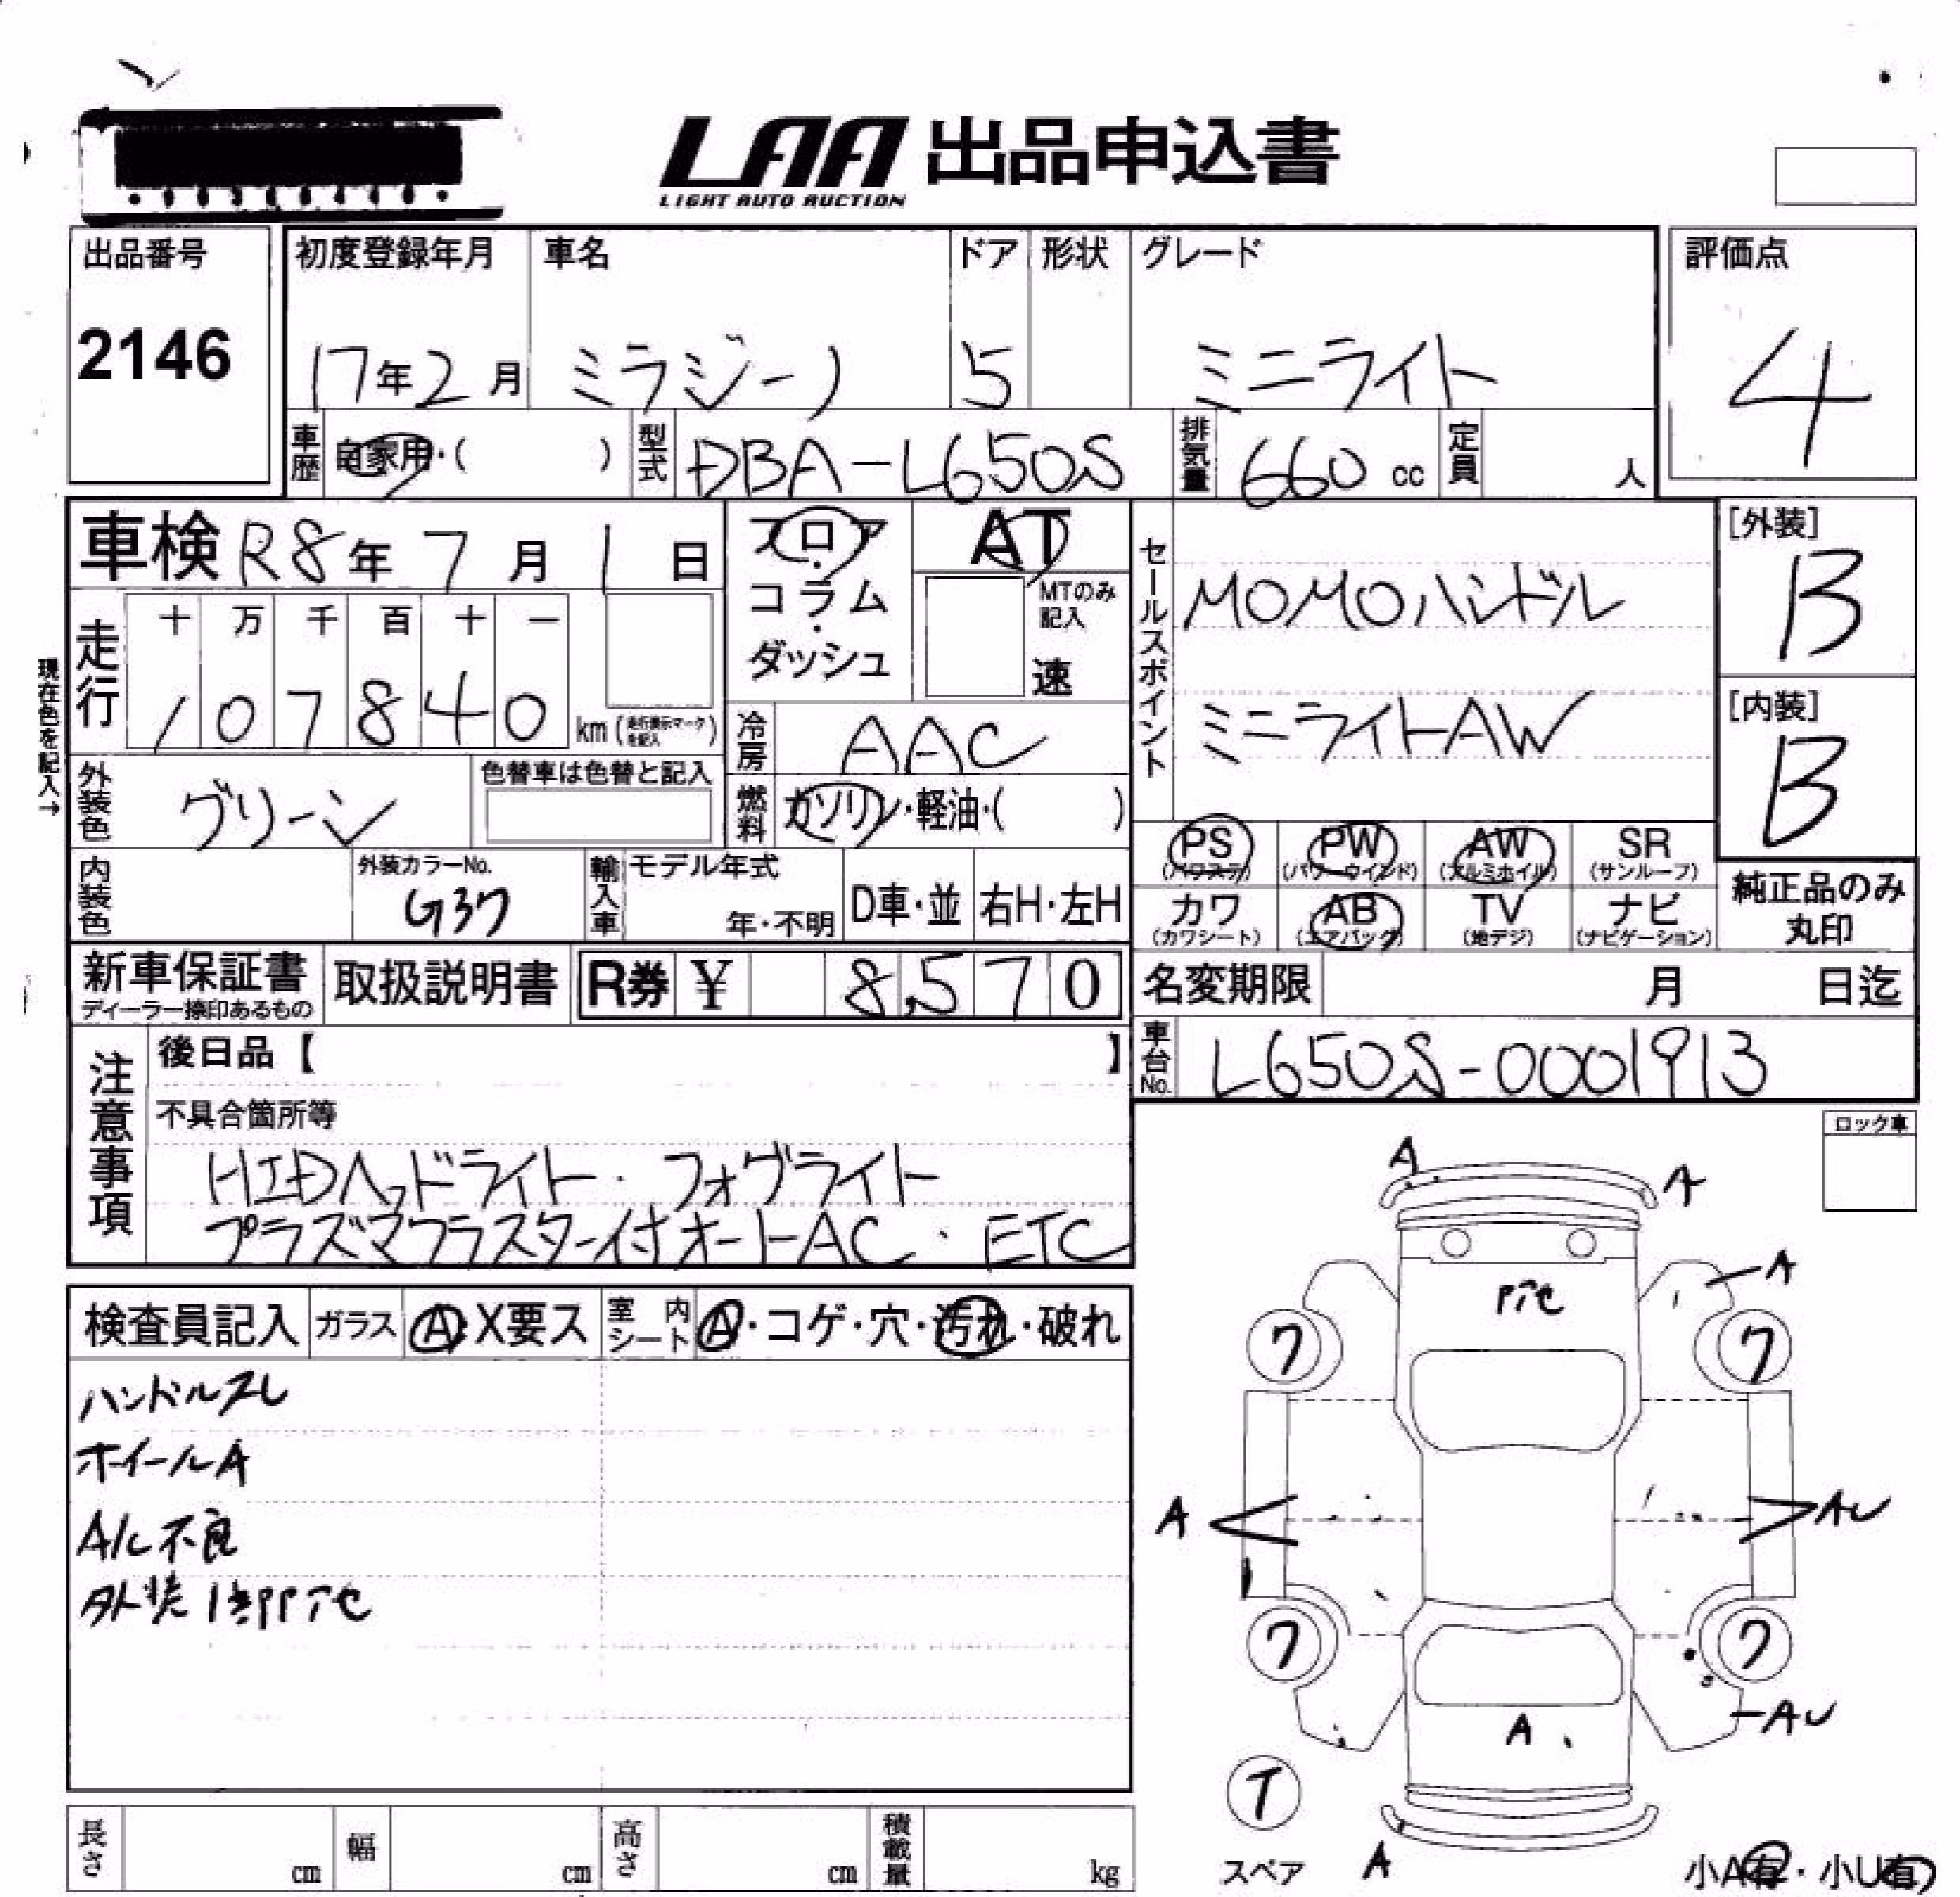 LAA 出品申込書
LIGHT AUTO AUCTION
出品番号
2146
初度登録年月
17年2月
車名
ミラジーノ
ドア
5
形状
グレード
ミニライト
評価点
4
車歴
自家用・( )
型式
DBA-L650S
排気量
660 cc
定員
人
車検 R8年7月1日
フロア
・
コラム
・
ダッシュ
AT
MTのみ
記入
速
セールスポイント
MOMOハンドル
ミニライトAW
[外装]
B
[内装]
B
現在色を記入→
走行
十 万 千 百 十 一
1 0 7 8 4 0
km (走行表示マークを記入)
冷房
AAC
外装色
グリーン
色替車は色替と記入
燃料
ガソリン・軽油・( )
PS
(パワステ)
PW
(パワーウインド)
AW
(アルミホイル)
SR
(サンルーフ)
カワ
(カワシート)
AB
(エアバック)
TV
(地デジ)
ナビ
(ナビゲーション)
純正品のみ
丸印
内装色
外装カラーNo.
G37
輸入車
モデル年式
年・不明
D車・並
右H・左H
新車保証書
ディーラー捺印あるもの
取扱説明書
R券 ¥ 8,570
名変期限 月 日迄
車台No.
L650S-0001913
注意事項
後日品【 】
不具合箇所等
HIDヘッドライト・フォグライト
プラズマクラスター付オートAC・ETC
ロック車
検査員記入
ガラス
A・X要ス
室内シート
A・コゲ・穴・汚れ・破れ
ハンドルスレ
ホイールA
A/C不良
外装
A
A
A
ワ
ワ
A
AU
ワ
ワ
AU
A
T
スペア
A
小A有・小U有
長さ cm
幅 cm
高さ cm
積載量 kg